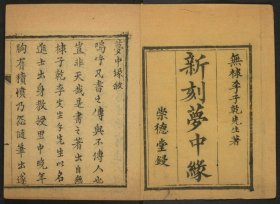 無棣李子乾先生著
新刻夢中緣
崇德堂鋟
夢中緣敘
嗚呼凡書之傳與不傳人也
豈非天哉是書之著出自無
棣子乾李先生先生以名
進士出身教授里中晚年
胸有積憤乃恣隨筆出遂